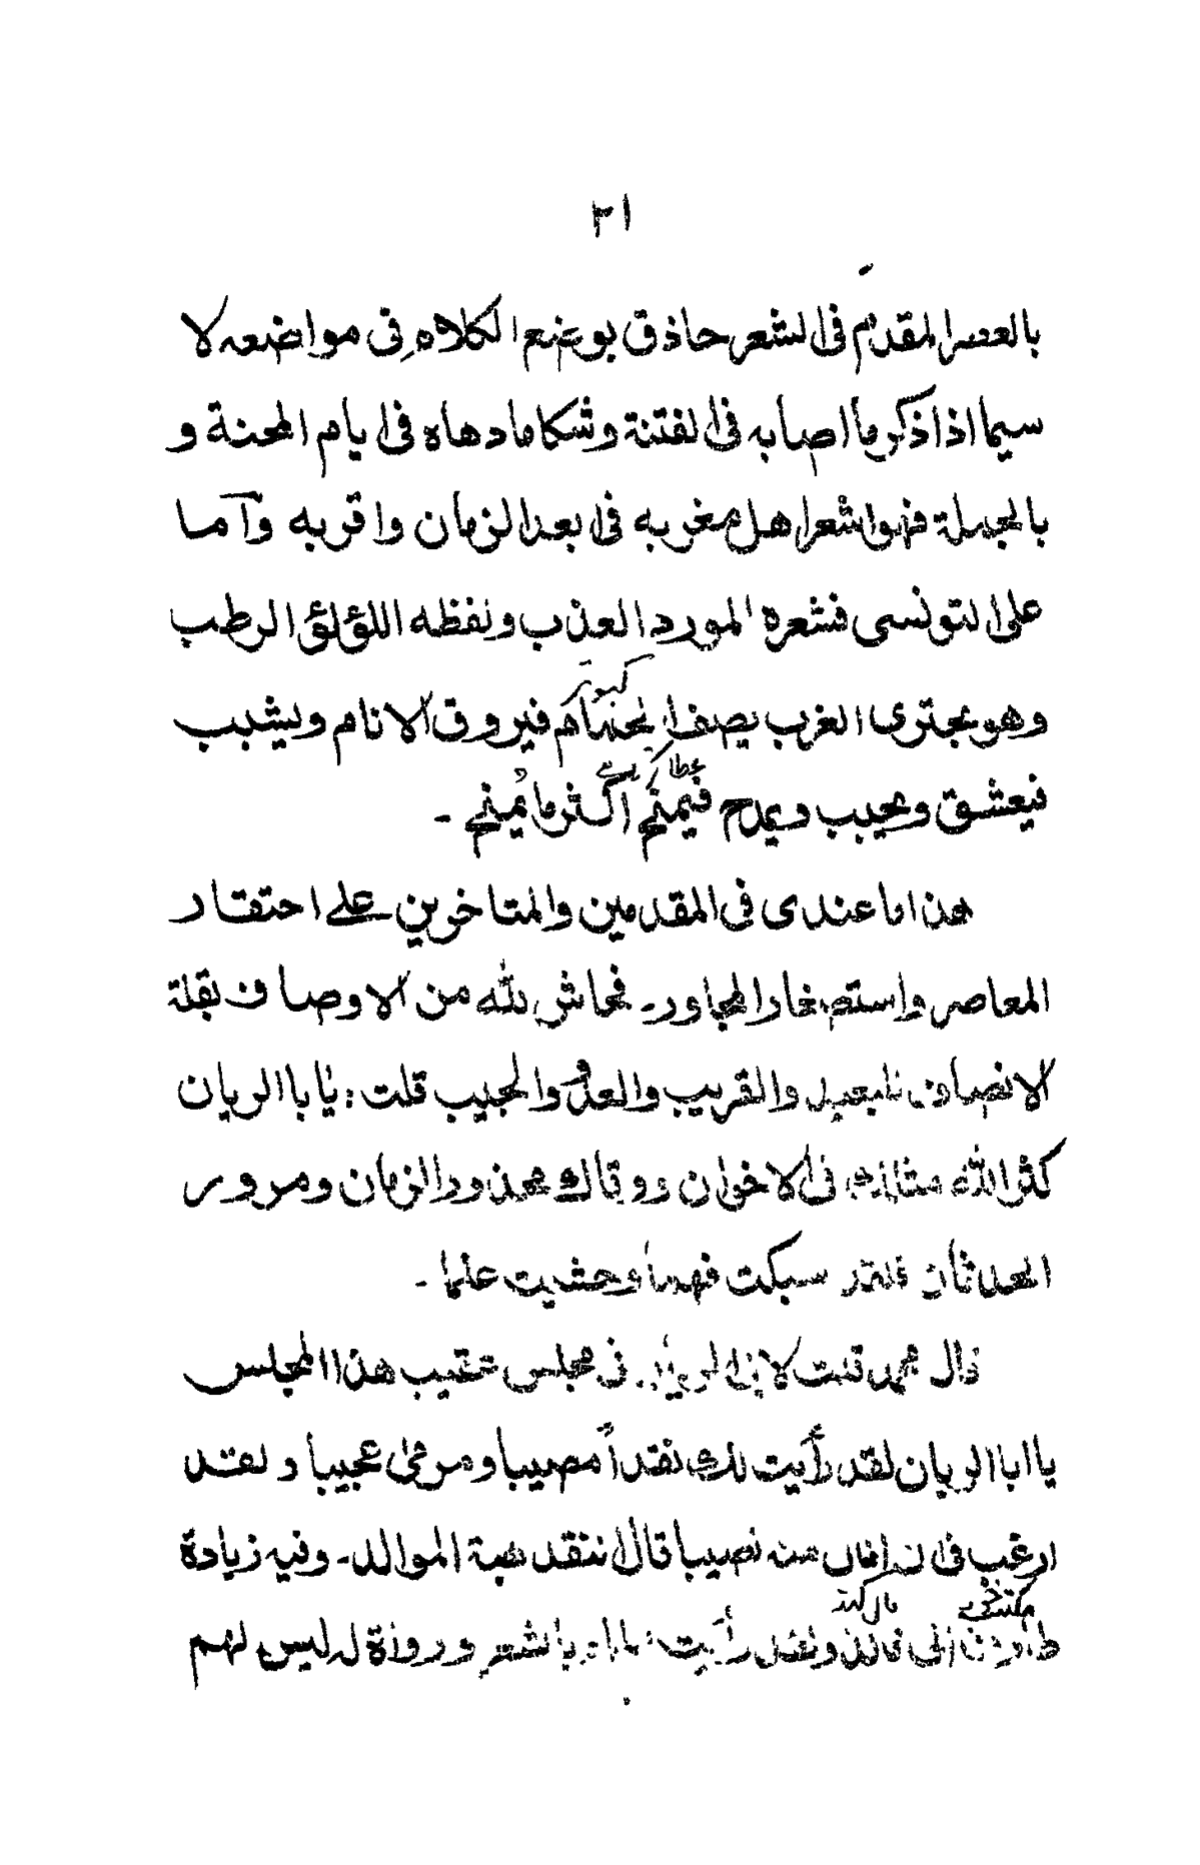 ٢١
بالعصر المقدم فى الشعر حاذق بوضع الكلام فى مواضعه لا
سيما اذا ذكر ما اصابه فى الفتنة وشكا ما دهاه فى ايام المحنة و
بالجملة فهو اشعر اهل مغربه فى ابعد الزمان واقربه وآما
على التونسى فشعره المورد العذب ولفظه اللؤلؤ الرطب
كبوتر
وهو بحترى الغرب يصف الحمام فيروق الانام ويشبب
عطا
فيعشق ويحبب ويمدح فيمنح اكثر مايُمنح -
هذا ما عندى فى المقدمين والمتاخرين على احتقار
المعاصر واستصغار المجاور۔ فحاش لله من الاوصاف بقلة
الانصاف للبعيد والقريب والعدو والحبيب قلت: يا با الريان
كثر الله مثلك فى الاخوان ووقاك محذور الزمان ومرور
الحدثان فلقد سبكت فهما وحشيت علما -
قال محمد قلت لابى الريان فى مجلس عقيب هذا المجلس
يا ابا الريان لقد رأيت لك نقداً مصيبا ومرمى عجيبا ولقد
ارغب فى ان انال منه نصيبا قال النقد هبة الموالد۔ وفيه زيادة
طارف الى تالد ولقد رأيت بالشعر ورواة له ليس لهم